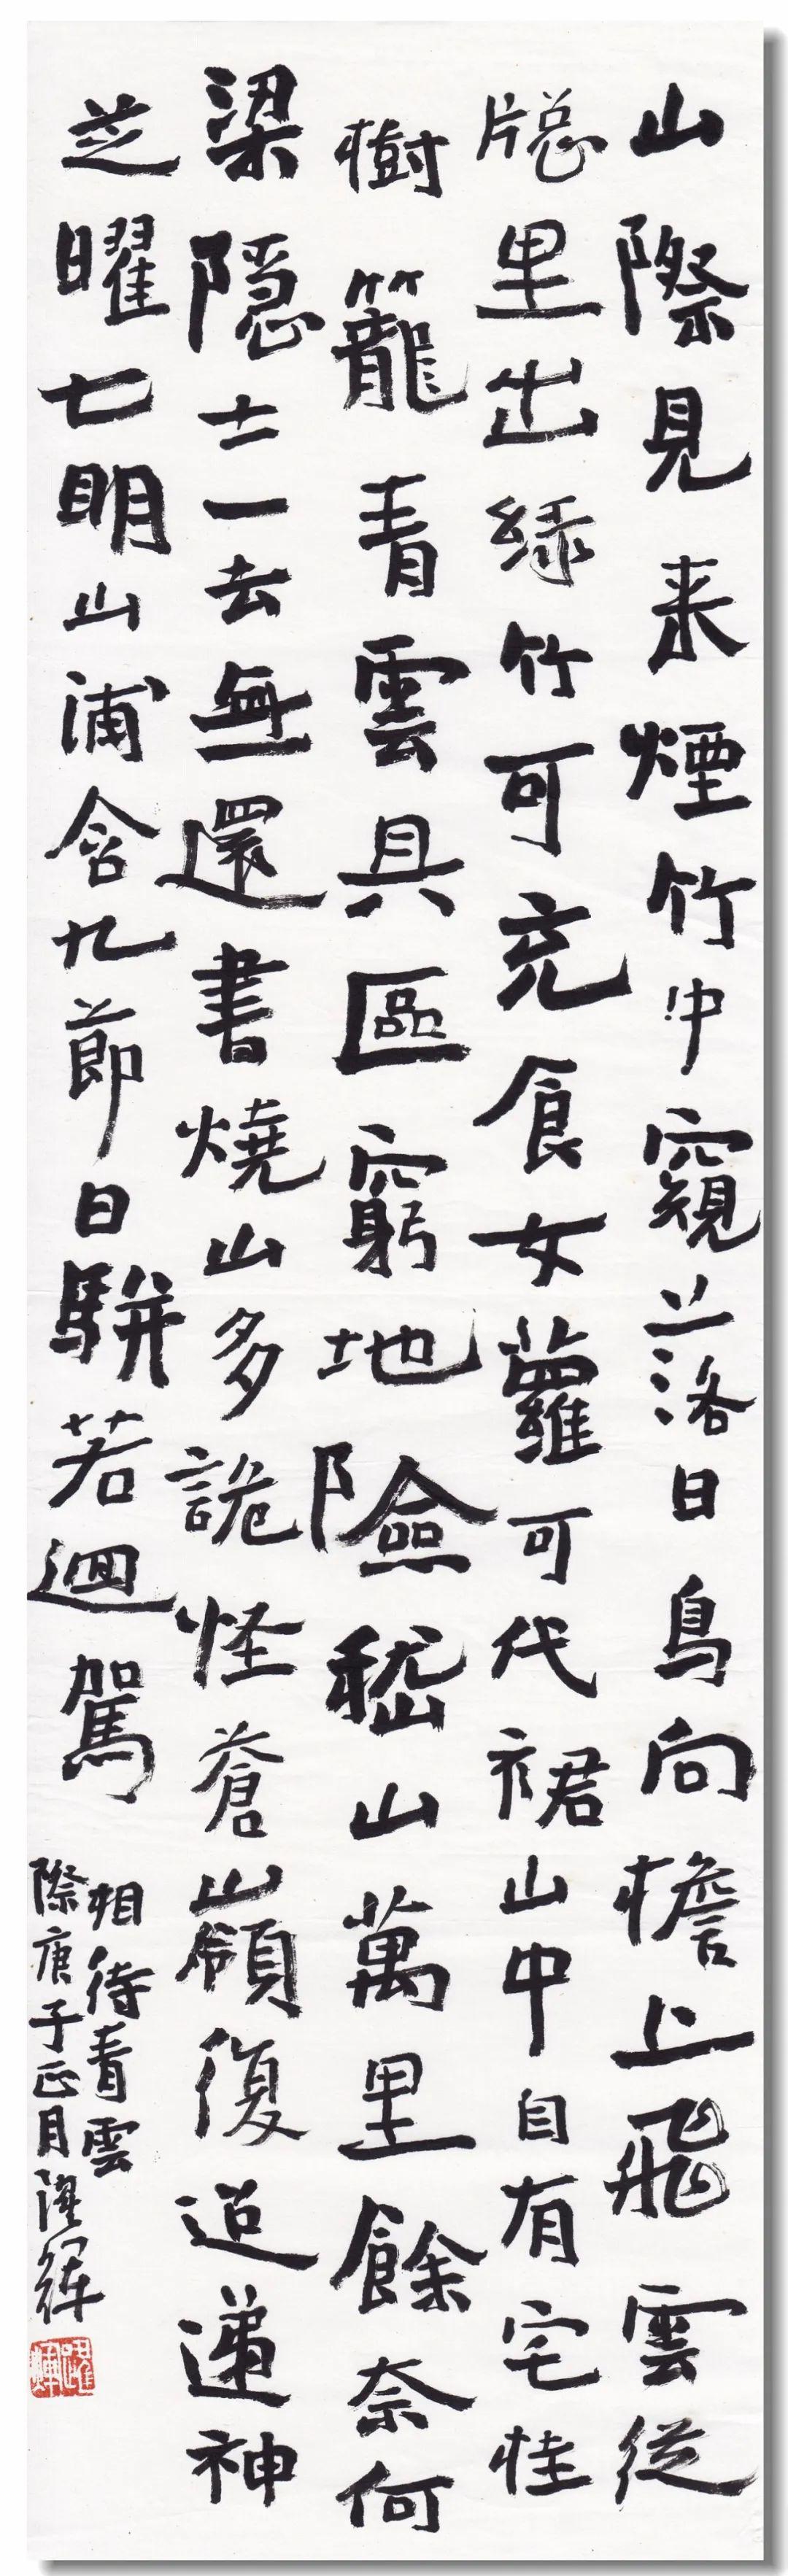 山際見来煙竹中窺落日鳥向檐上飛雲從
牕里出綠竹可充食女蘿可代裙山中自有宅桂
樹籠青雲具區窮地險嵇山萬里餘奈何
梁隐士一去無還書燒山多詭怪蒼嶺復迢遞神
芝曜七明山浦含九節日騈若迴駕
相待青雲
際庚子正月